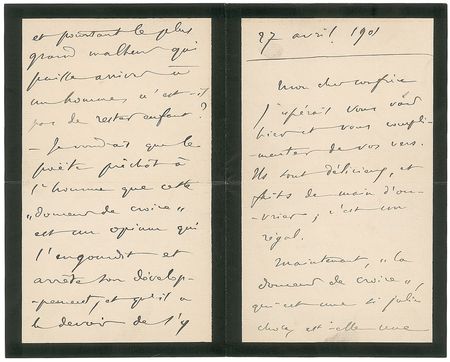 27 avril 1901
Mon cher confrère
J'espérais vous voir
hier et vous compli-
menter de vos vers.
Ils sont délicieux, et
faits de main d'ou-
vrier ; c'est un
régal.
Maintenant, "la
douceur de croire",
qui est une si jolie
chose, est-elle une
et pourtant le plus
grand malheur qui
puisse arriver à
un homme, n'est-il
pas de rester enfant ?
- Je voudrais que le
poète prêchât à
l'homme que cette
"douceur de croire"
est un opium qui
l'engourdit et
arrête son dévelop-
-pement, et qu'il a
le devoir de s'y